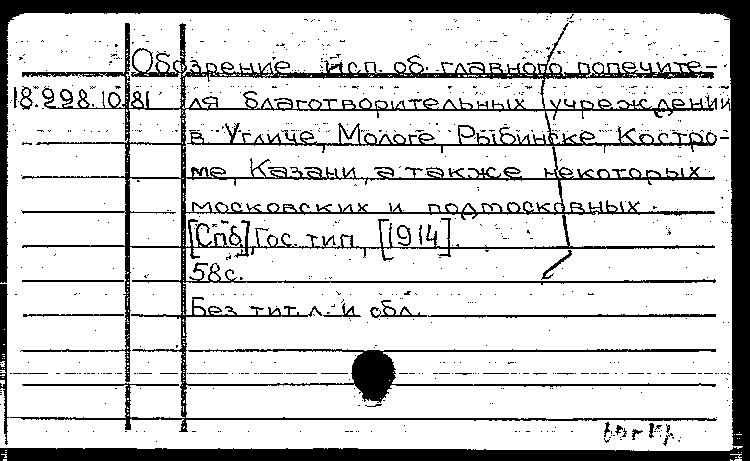 Обозрение исп. об. главного попечите-
18.298.10.81 ля благотворительных учреждений
в Угличе, Мологе, Рыбинске, Костро-
ме, Казани, а также некоторых
московских и подмосковных.
[Спб], Гос. тип., [1914].
58с.
Без тит. л. и обл.